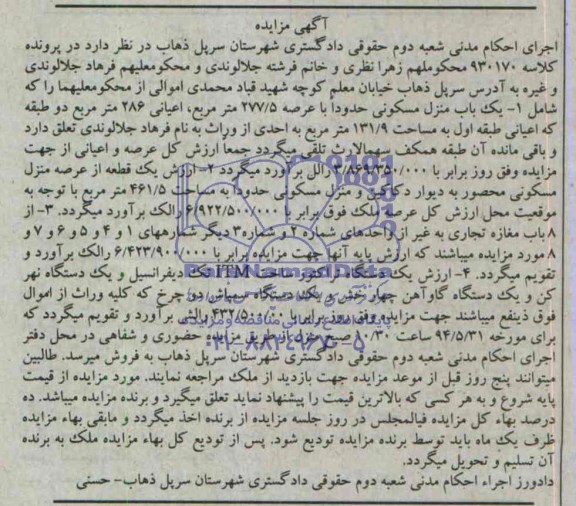 آگهی مزایده
اجرای احکام مدنی شعبه دوم حقوقی دادگستری شهرستان سرپل ذهاب در نظر دارد در پرونده
کلاسه ۹۳۰۱۷۰ محکوملهم زهرا نظری و خانم فرشته جلالوندی و محکومعلیهم فرهاد جلالوندی
و غیره به آدرس سرپل ذهاب خیابان معلم کوچه شهید قباد محمدی اموالی از محکومعلیهما را که
شامل ۱- یک باب منزل مسکونی حدودا با عرصه ۲۷۷/۵ متر مربع، اعیانی ۲۸۶ متر مربع دو طبقه
که اعیانی طبقه اول به مساحت ۱۳۱/۹ متر مربع به احدی از وراث به نام فرهاد جلالوندی تعلق دارد
و باقی مانده آن طبقه همکف سهمالارث تلقی میگردد جمعا ارزش کل عرصه و اعیانی از جهت
مزایده وفق روز برابر با ۳/۸۶۹/۳۵۰/۰۰۰ رالل برآورد میگردد ۲- ارزش یک قطعه از عرصه منزل
مسکونی محصور به دیوار دکاکین و منزل مسکونی حدودا به مساحت ۴۶۱/۵ متر مربع با توجه به
موقعیت محل ارزش کل عرصه ملک فوق برابر با ۶/۹۲۲/۵۰۰/۰۰۰ رالک برآورد میگردد. ۳- از
۸ باب مغازه تجاری به غیر از واحدهای شماره ۲ و شماره ۳ دیگر شمارههای ۱ و ۴ و ۵ و ۶ و ۷ و
۸ مورد مزایده میباشند که ارزش پایه آنها جهت مزایده برابر با ۶/۴۲۳/۹۰۰/۰۰۰ رالک برآورد و
تقویم میگردد. ۴- ارزش یک دستگاه تراکتور ساخت ITM دیفرانسیل و یک دستگاه نهر
کن و یک دستگاه گاوآهن چهار خش و یک دستگاه سمپاش دو چرخ که کلیه وراث از اموال
فوق ذینفع میباشند جهت مزایده وفق روز برابر با ۴۳۲/۵۰۰/۰۰۰ رالش برآورد و تقویم میگردد که
برای مورخه ۹۴/۵/۳۱ ساعت ۱۰/۳۰ صبح از طریق مزایده حضوری و شفاهی در محل دفتر
اجرای احکام مدنی شعبه دوم حقوقی دادگستری شهرستان سرپل ذهاب به فروش میرسد. طالبین
میتوانند پنج روز قبل از موعد مزایده جهت بازدید از ملک مراجعه نمایند. مورد مزایده از قیمت
پایه شروع و به هر کسی که بالاترین قیمت را پیشنهاد نماید تعلق میگیرد و برنده مزایده میباشد. ده
درصد بهاء کل مزایده فیالمجلس در روز جلسه مزایده از برنده اخذ میگردد و مابقی بهاء مزایده
ظرف یک ماه باید توسط برنده مزایده تودیع شود. پس از تودیع کل بهاء مزایده ملک به برنده
آن تسلیم و تحویل میگردد.
دادورز اجراء احکام مدنی شعبه دوم حقوقی دادگستری شهرستان سرپل ذهاب- حسنی